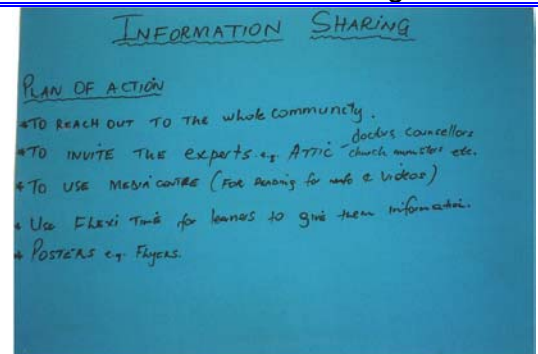 INFORMATION SHARING
PLAN OF ACTION
*TO REACH OUT TO THE whole community.
*TO INVITE THE experts e.g. ATTIC - doctors councellors
church ministers etc.
*TO USE MEDIA CENTRE (FOR reading for info & videos)
* Use Flexi Time for learners to give them information.
* POSTERS e.g. Flyers.